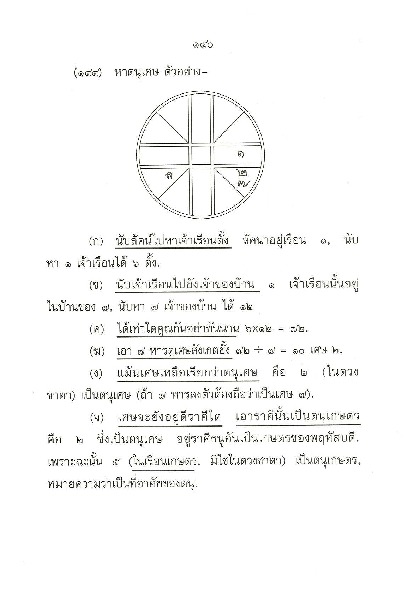 ๑๔๖
(๑๙๙) หาตนุเศษ ตัวอย่าง–
๑
ส ๒
๗
(ก) นับลัคน์ไปหาเจ้าเรือนตั้ง ลัคนาอยู่เรือน ๑, นับ
หา ๑ เจ้าเรือนได้ ๖ ตั้ง.
(ข) นับเจ้าเรือนไปยังเจ้าของบ้าน ๑ เจ้าเรือนนั้นอยู่
ในบ้านของ ๗, นับหา ๗ เจ้าของบ้าน ได้ ๑๒
(ค) ได้เท่าใดคูณกันอย่าทันนาน ๖×๑๒ = ๗๒.
(ฆ) เอา ๗ หารดูเศษสังเกตยั้ง ๗๒ ÷ ๗ = ๑๐ เศษ ๒.
(ง) แม้นเศษเหลือเรียกว่าตนุเศษ คือ ๒ (ในดวง
ชาตา) เป็นตนุเศษ (ถ้า ๗ หารลงตัวต้องถือว่าเป็นเศษ ๗).
(จ) เศษจะยังอยู่ที่ราศีใด เอาราศีนั้นเป็นตนุเกษตร
คือ ๒ ซึ่งเป็นตนุเศษ อยู่ราศีธนูอันเป็นเกษตรของพฤหัสบดี.
เพราะฉะนั้น ๕ (ในเรือนเกษตร, มิใช่ในดวงชาตา) เป็นตนุเกษตร,
หมายความว่าเป็นที่อาศัยของตนุ.